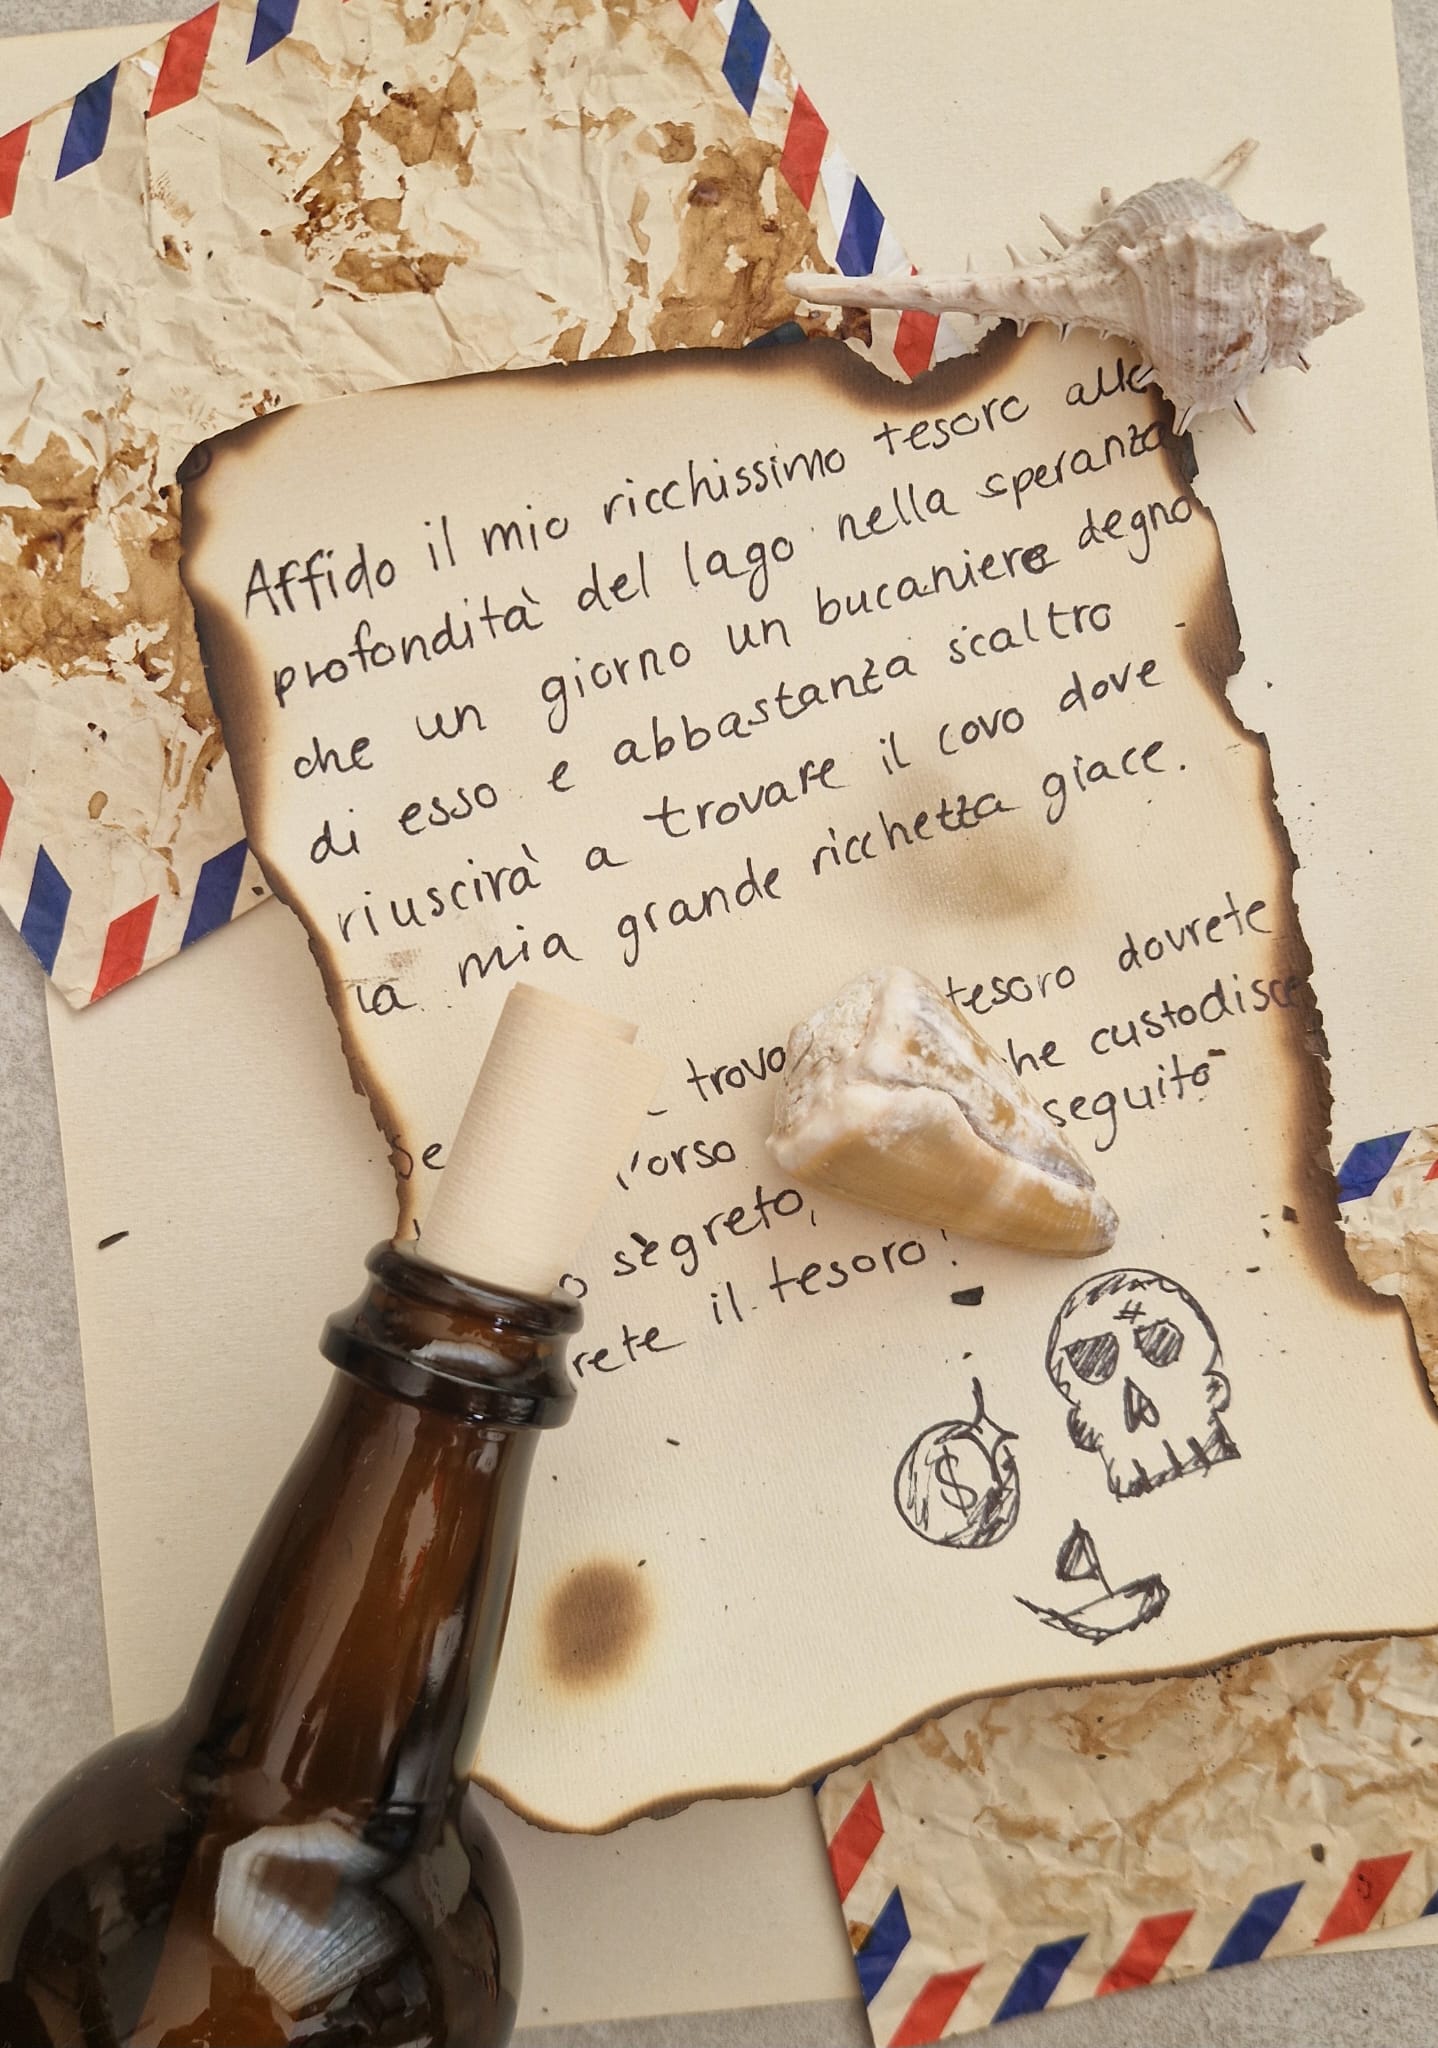 Affido il mio ricchissimo tesoro alle
profondità del lago nella speranza
che un giorno un bucaniere degno
di esso e abbastanza scaltro
riuscirà a trovare il covo dove
la mia grande ricchezza giace.
Se trova tesoro dovrete
l'orso che custodisce
segreto, seguito
rete il tesoro!
$